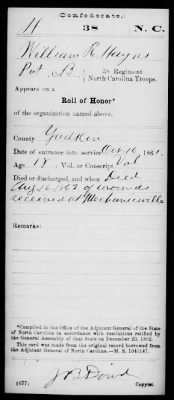 Confederate.
H 38 N. C.
William R. Hayns
Pvt., Co. B, 38 Regiment
North Carolina Troops.
Appears on a
Roll of Honor*
of the organization named above.
County Yadkin
Date of entrance into service Oct. 16, 1861.
Age 18; Vol. or Conscript Vol
Died or discharged, and when Died
Aug 16 1862 of wounds
received at Mechanicsville
Remarks:
*Compiled in the Office of the Adjutant General of the State
of North Carolina in accordance with resolutions ratified by
the General Assembly of that State on December 20, 1862.
This card was made from the original record borrowed from
the Adjutant General of North Carolina.—M. S. 1041147.
J B Dowd
(577) Copyist.